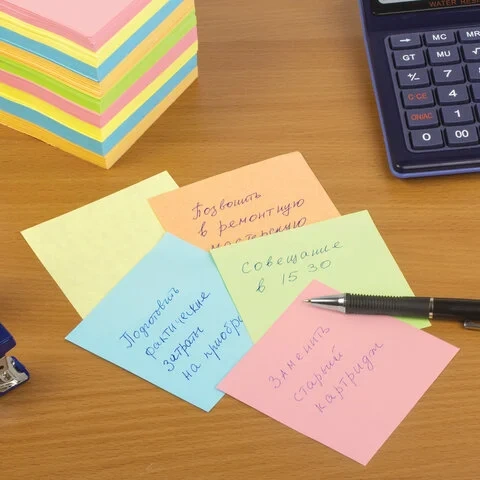 WATER RE
→ MC MR
GT MU √
+/- 7
C·CE 4
ON/AC 1
0 00
Позвонить
в ремонтную
мастерскую
Совещание
в 15 30
Подготовить
фактические
затраты
на приобр
Заменить
старый
картридж